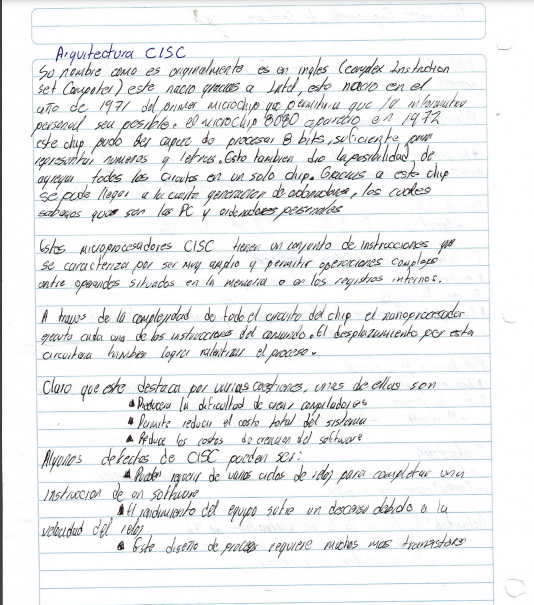 Arquitectura CISC
Su nombre como es originalmente es en ingles (complex Instruction
set Computer) este nacio gracias a Intel, esto nacio en el
año de 1971 del primer microchip que permitiria que la informatica
personal sea posible. el microchip 8080 aparecio en 1972
este chip pudo ser capaz de procesar 8 bits, suficiente para
representar numeros y letras. Esto tambien dio la posibilidad de
agregar todos los circuitos en un solo chip. Gracias a este chip
se pudo llegar a la cuarta generacion de ordenadores, los cuales
sabemos que son las PC y ordenadores personales
Estos microprocesadores CISC tienen un conjunto de instrucciones que
se caracteriza por ser muy amplio y permitir operaciones complejas
entre operandos situados en la memoria o en los registros internos.
A traves de la complejidad de todo el circuito del chip el nanoprocesador
ejecuta cada una de las instrucciones del comando. El desplazamiento por esta
circuiteria tambien logra ralentizar el proceso.
Claro que este destaca por varias cuestiones, unas de ellas son
Reducen la dificultad de crear compiladores
Permite reducir el costo total del sistema
Reduce los costos de creacion del software
Algunos defectos de CISC pueden ser:
Pueden requerir de varios ciclos de reloj para completar una
instruccion de un software
El rendimiento del equipo sufre un descenso debido a la
velocidad del reloj
Este diseño de proceso requiere muchos mas transistores